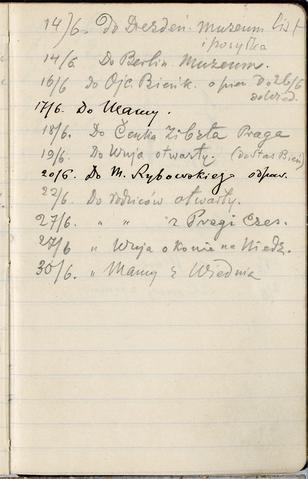 14/6. Do Drezden. Muzeum list
i posyłka
14/6. Do Berlin. Muzeum.
16/6 do Ojc. Bieńk.
17/6. Do Mamy.
18/6. Do Čenka Zibrta Praga
19/6. Do Wuja otwarty. (dostał Bień)
20/6. Do M. Rybowskiego odpow.
22/6. Do rodziców otwarty.
27/6. " " z Pragi Czes.
27/6 " Wuja o konie na Niedz.
30/6. " Mamy z Wiednia